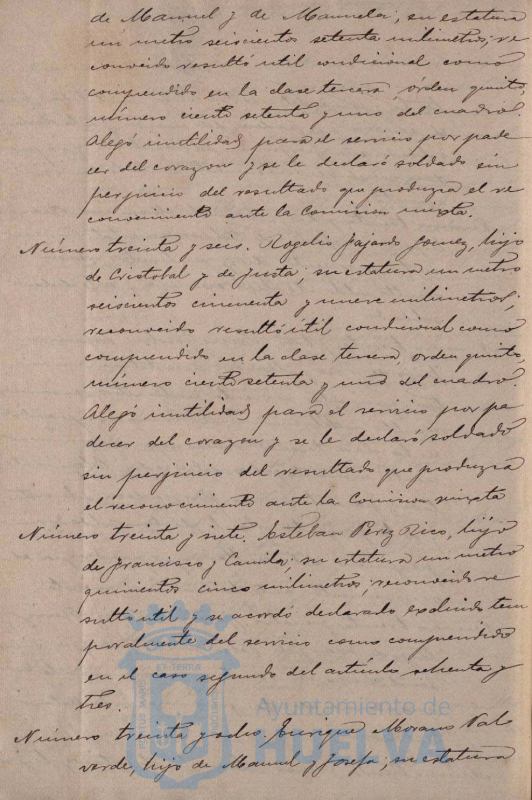 de Manuel y de Manuela; su estatura
un metro seiscientos setenta milimetros; re
conocido resultó útil condicional como
comprendido en la clase tercera, órden quinto,
número ciento setenta y uno del cuadro.
Alegó inutilidad para el servicio por pade
cer del corazon y se le declaró soldado sin
perjuicio del resultado que produzca el re
conocimiento ante la Comision mixta.
Número treinta y seis. Rogelio Fajardo Gomez, hijo
de Cristobal y de Justa; su estatura un metro
seiscientos cincuenta y nueve milimetros;
reconocido resultó útil condicional como
comprendido en la clase tercera, orden quinto,
número ciento setenta y uno del cuadro.
Alegó inutilidad para el servicio por pa
decer del corazon y se le declaró soldado
sin perjuicio del resultado que produzca
el reconocimiento ante la Comision mixta
Número treinta y siete. Esteban Perez Rico, hijo
de Francisco y Camila; su estatura un metro
quinientos cinco milimetros; reconocido re
sultó útil y se acordó declarado excluido tem
poralmente del servicio como comprendido
en el caso segundo del artículo ochenta y
tres.
Número treinta y ocho. Enrique Morano Val
verde, hijo de Manuel y Josefa; su estatura
Ayuntamiento de
HUELVA